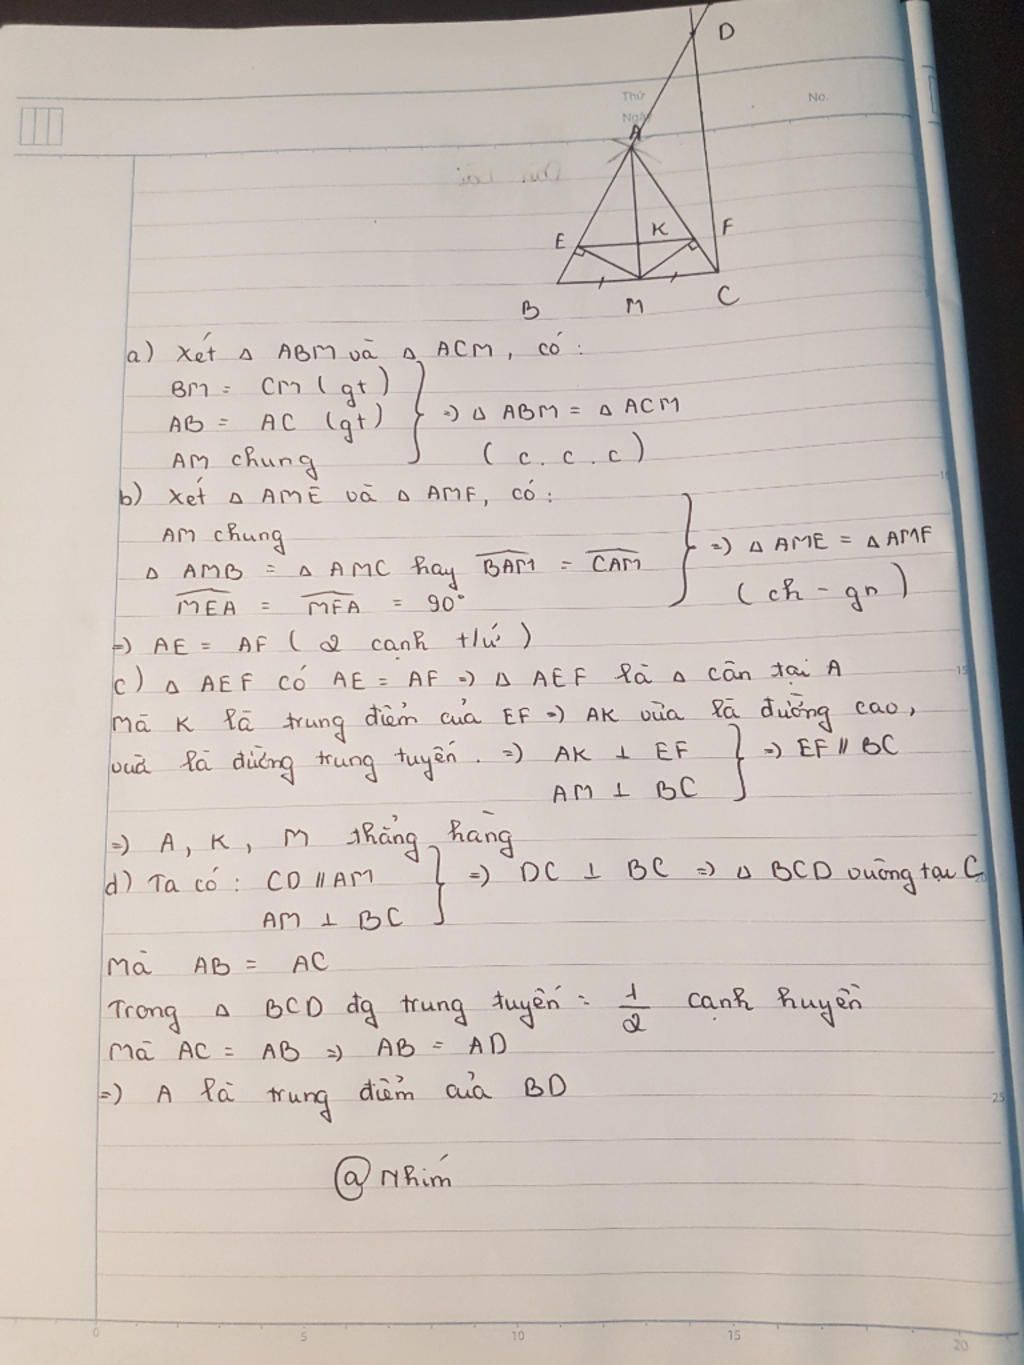 D
Thứ
No.
Ngày
A
E
K
F
B
M
C
a) Xét Δ ABM và Δ ACM, có:
BM = CM (gt)
AB = AC (gt)
AM chung
=> Δ ABM = Δ ACM
(c.c.c)
b) Xét Δ AME và Δ AMF, có:
AM chung
Δ AMB = Δ AMC hay BAM = CAM
MEA = MFA = 90°
=> Δ AME = Δ AMF
(ch - gn)
=> AE = AF (2 cạnh t/ứ)
c) Δ AEF có AE = AF => Δ AEF là Δ cân tại A
Mà K là trung điểm của EF => AK vừa là đường cao,
vừa là đường trung tuyến. => AK ⊥ EF
AM ⊥ BC
=> EF // BC
=> A, K, M thẳng hàng
d) Ta có: CD // AM
AM ⊥ BC
=> DC ⊥ BC => Δ BCD vuông tại C
Mà AB = AC
Trong Δ BCD đg trung tuyến = 1/2 cạnh huyền
Mà AC = AB => AB = AD
=> A là trung điểm của BD
@Nhím
10
15
20
25
0
5
10
15
20